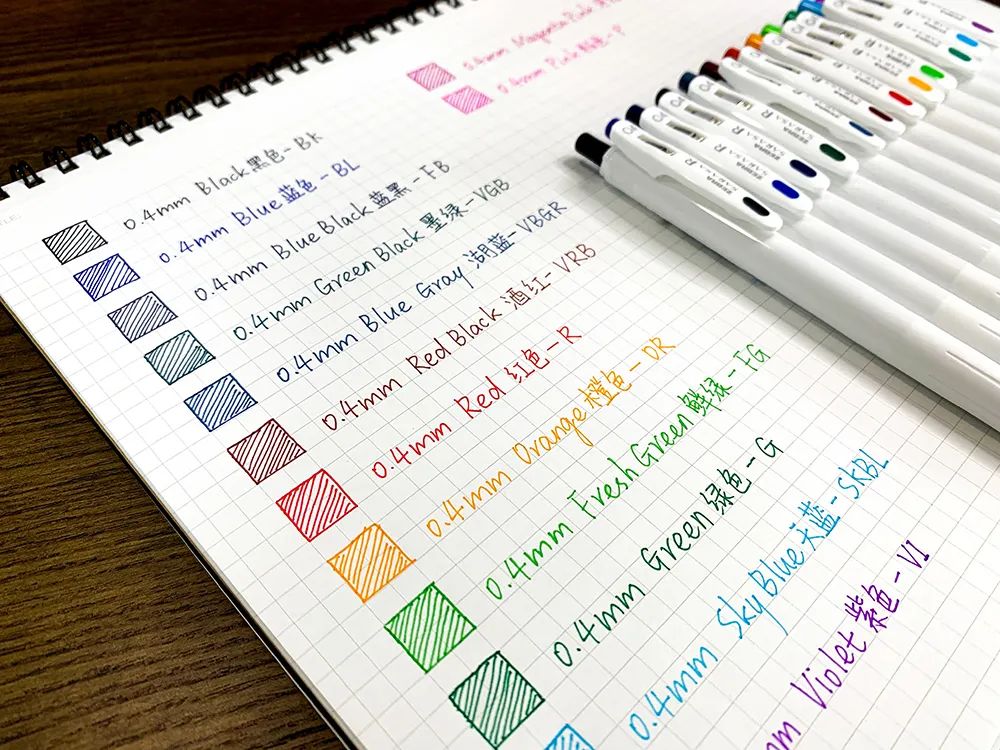 0.4mm Black 黑色-BK
0.4mm Blue 蓝色-BL
0.4mm Blue Black 蓝黑-FB
0.4mm Green Black 墨绿-VGB
0.4mm Blue Gray 湖蓝-VBGR
0.4mm Red Black 酒红-VRB
0.4mm Red 红色-R
0.4mm Orange 橙色-OR
0.4mm Fresh Green 鲜绿-FG
0.4mm Green 绿色-G
0.4mm Sky Blue 天蓝-SKBL
mm Violet 紫色-VI
0.4mm Magenta Pink
0.4mm Pink 粉色-P
ZEBRA
SARASA R
ZEBRA
SARASA R
ZEBRA
SARASA R
ZEBRA
SARASA R